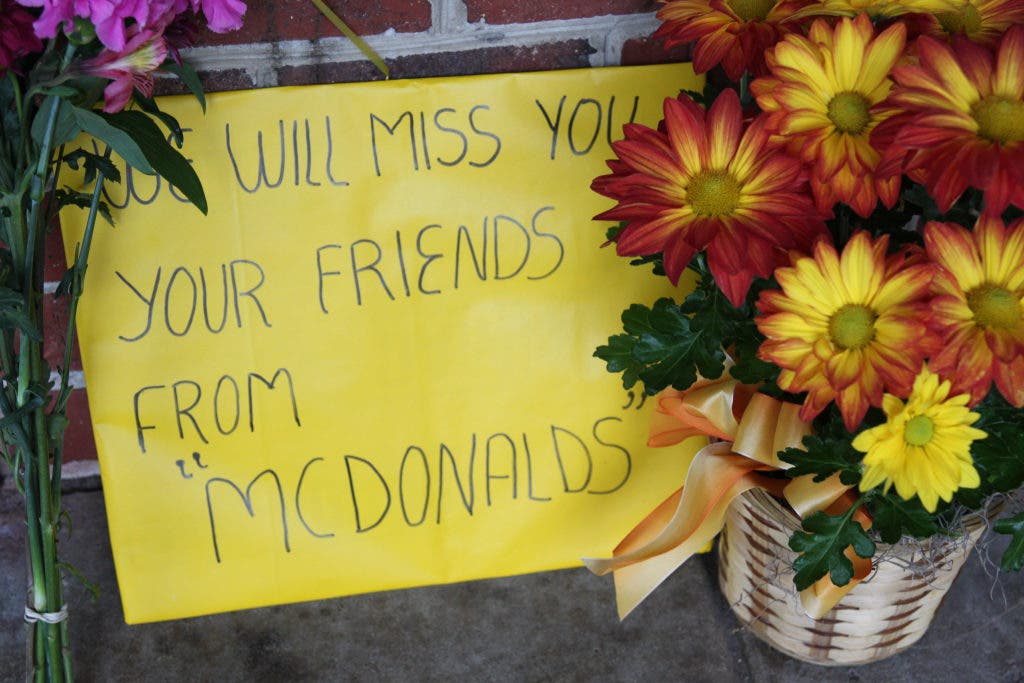 WE WILL MISS YOU
YOUR FRIENDS
FROM
"MCDONALDS"